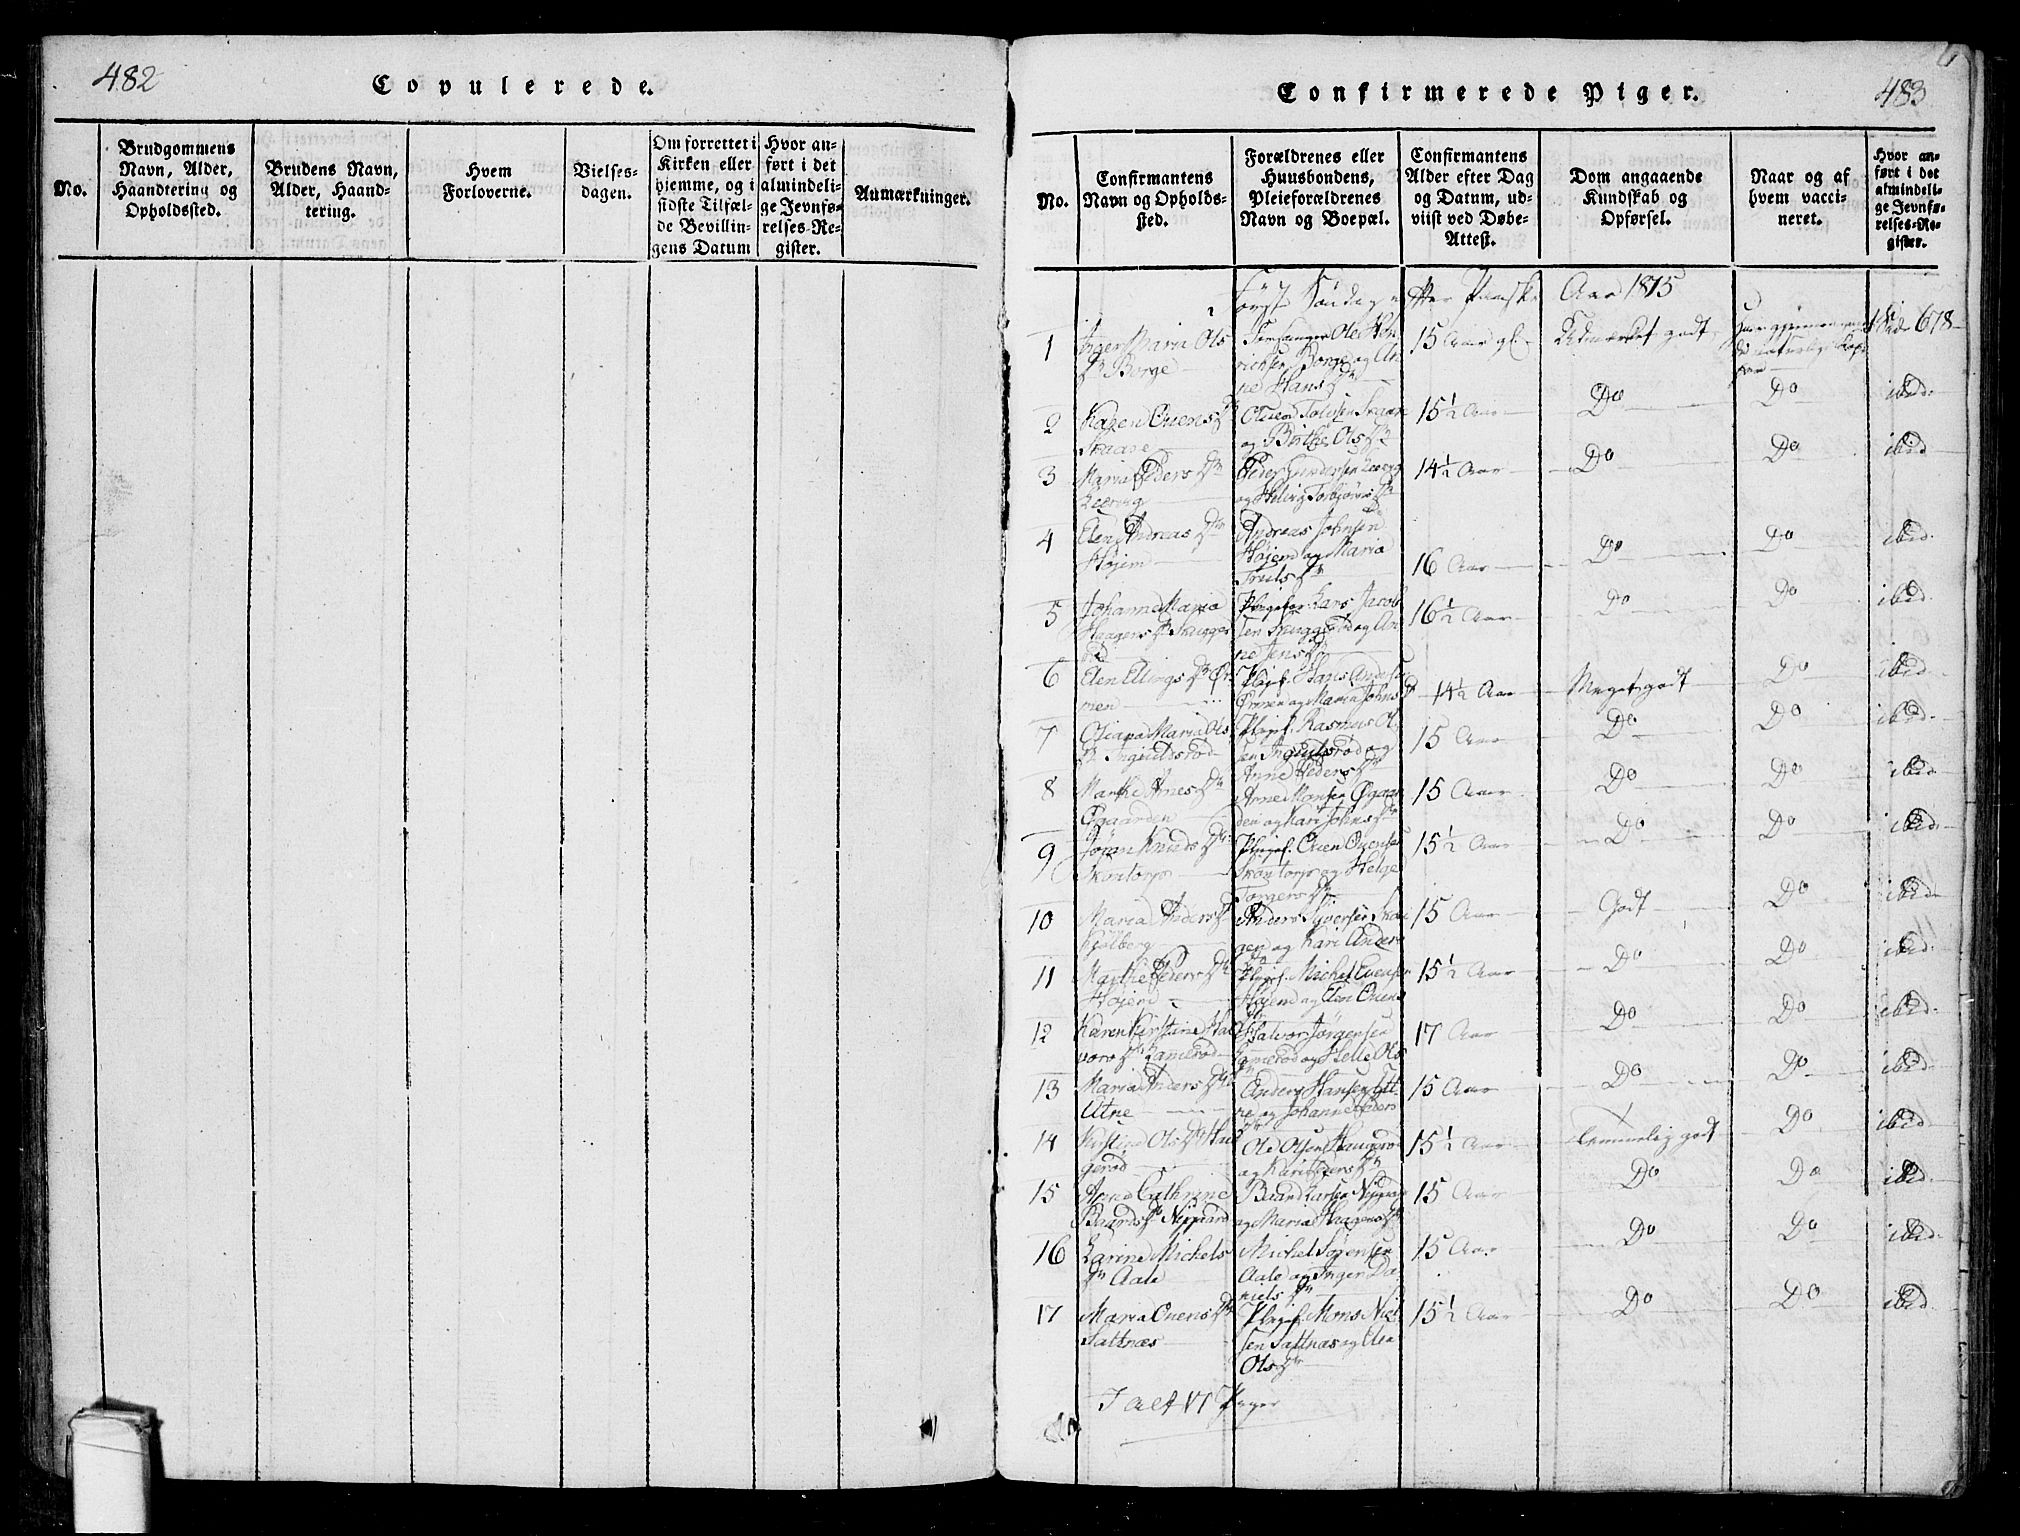 482
Copulerede.
No.
Brudgommens
Navn, Alder,
Haandtering og
Opholdssted.
Brudens Navn,
Alder, Haand-
tering.
Hvem
Forloverne.
Vielses-
dagen.
Om forrettet i
Kirken eller
hjemme, og i
sidste Tilfæl-
de Bevillin-
gens Datum
Hvor an-
ført i det
almindeli-
ge Jevnfø-
relses-Re-
gister.
Anmærkninger.
483
Confirmerede Piger.
No.
Confirmantens
Navn og Opholds-
sted.
Forældrenes eller
Huusbondens,
Pleieforældrenes
Navn og Boepæl.
Confirmantens
Alder efter Dag
og Datum, ud-
viist ved Døbe-
Attest.
Dom angaaende
Kundskab og
Opførsel.
Naar og af
hvem vacci-
neret.
Hvor an-
ført i det
almindeli-
ge Jevnfø-
relses-Re-
gister.
Søndag efter Paaske Aar 1815
1 Inger Maria Ols
Dr Borge
Ole Hen
richsen Borge og An
ne Hans Dr
15 Aar gl. Udmærket godt
naturlige
678
2 Karen Ouens Dr
Skaare
Ouen Skaare
og Birthe Ols Dr
15½ Aar Do Do ibid.
3 Maria Peders Dr
Peder Gundersen
og Helvig Torbjørns Dr
14½ Aar Do Do ibid
4 Elen Andreas Dr
Højem
Andreas Johnsen
Højem og Maria
Truls Dr
16 Aar Do Do ibid.
5 Johanne Maria
Haagens Dr Skugge
rød
Lars Jacob
sen og An
ne Jens Dr
16½ Aar Do Do ibid.
6 Elen Ellings Dr Ør
men
Plejef. Hans Anders
Ørmen og Maria Johns Dr
14½ Aar Meget godt Do ibid.
7 Oliana Maria Ols
Dr Ingvaldsrød
Plejef. Rasmus Ol
sen og
Anne Peders Dr
15 Aar Do Do ibid.
8 Marthe Arnes Dr
Øgaarden
Arne Monsen Øgaar
den og Kari Johns Dr
15 Aar Do Do ibid.
9 Jøran Knuds Dr
Skåntorp
Plejef. Ouen Ouensen
Skåntorp og Helge
Torgers Dr
15½ Aar Do Do ibid.
10 Maria Anders Dr
Kjølberg
Anders Syversen
og Kari Anders
Dr
15 Aar Godt Do ibid.
11 Marthe Peders Dr
Højem
Plejef. Michel Evensen
Højem og Elen Ouens
Dr
15½ Aar Do Do ibid.
12 Karen Kirstine Hal
vors Dr
Halvor Jørgensen
og Helle Ols
Dr
17 Aar Do Do ibid.
13 Maria Anders Dr
Utne
Anders Hansen Ut
ne og Johanne Peders
Dr
15 Aar Do Do ibid.
14 Kirstine Ols Dr Hau
gerød
Ole Olsen Haugerød
og Kari Peders Dr
15½ Aar Temmelig godt Do ibid.
15 Anne Cathrine
Baards Dr Nygaard
Baard Larsen Nygaar
og Maria Haagens Dr
15 Aar Do Do ibid.
16 Karine Michels
Dr Aale
Michel Sørensen
Aale og Inger Da
niels Dr
15 Aar Do Do ibid.
17 Maria Ouens Dr
Saltnæs
Plejef. Mons Niel
sen Saltnæs og Elen
Ols Dr
15½ Aar Do Do ibid.
I alt 17 Piger